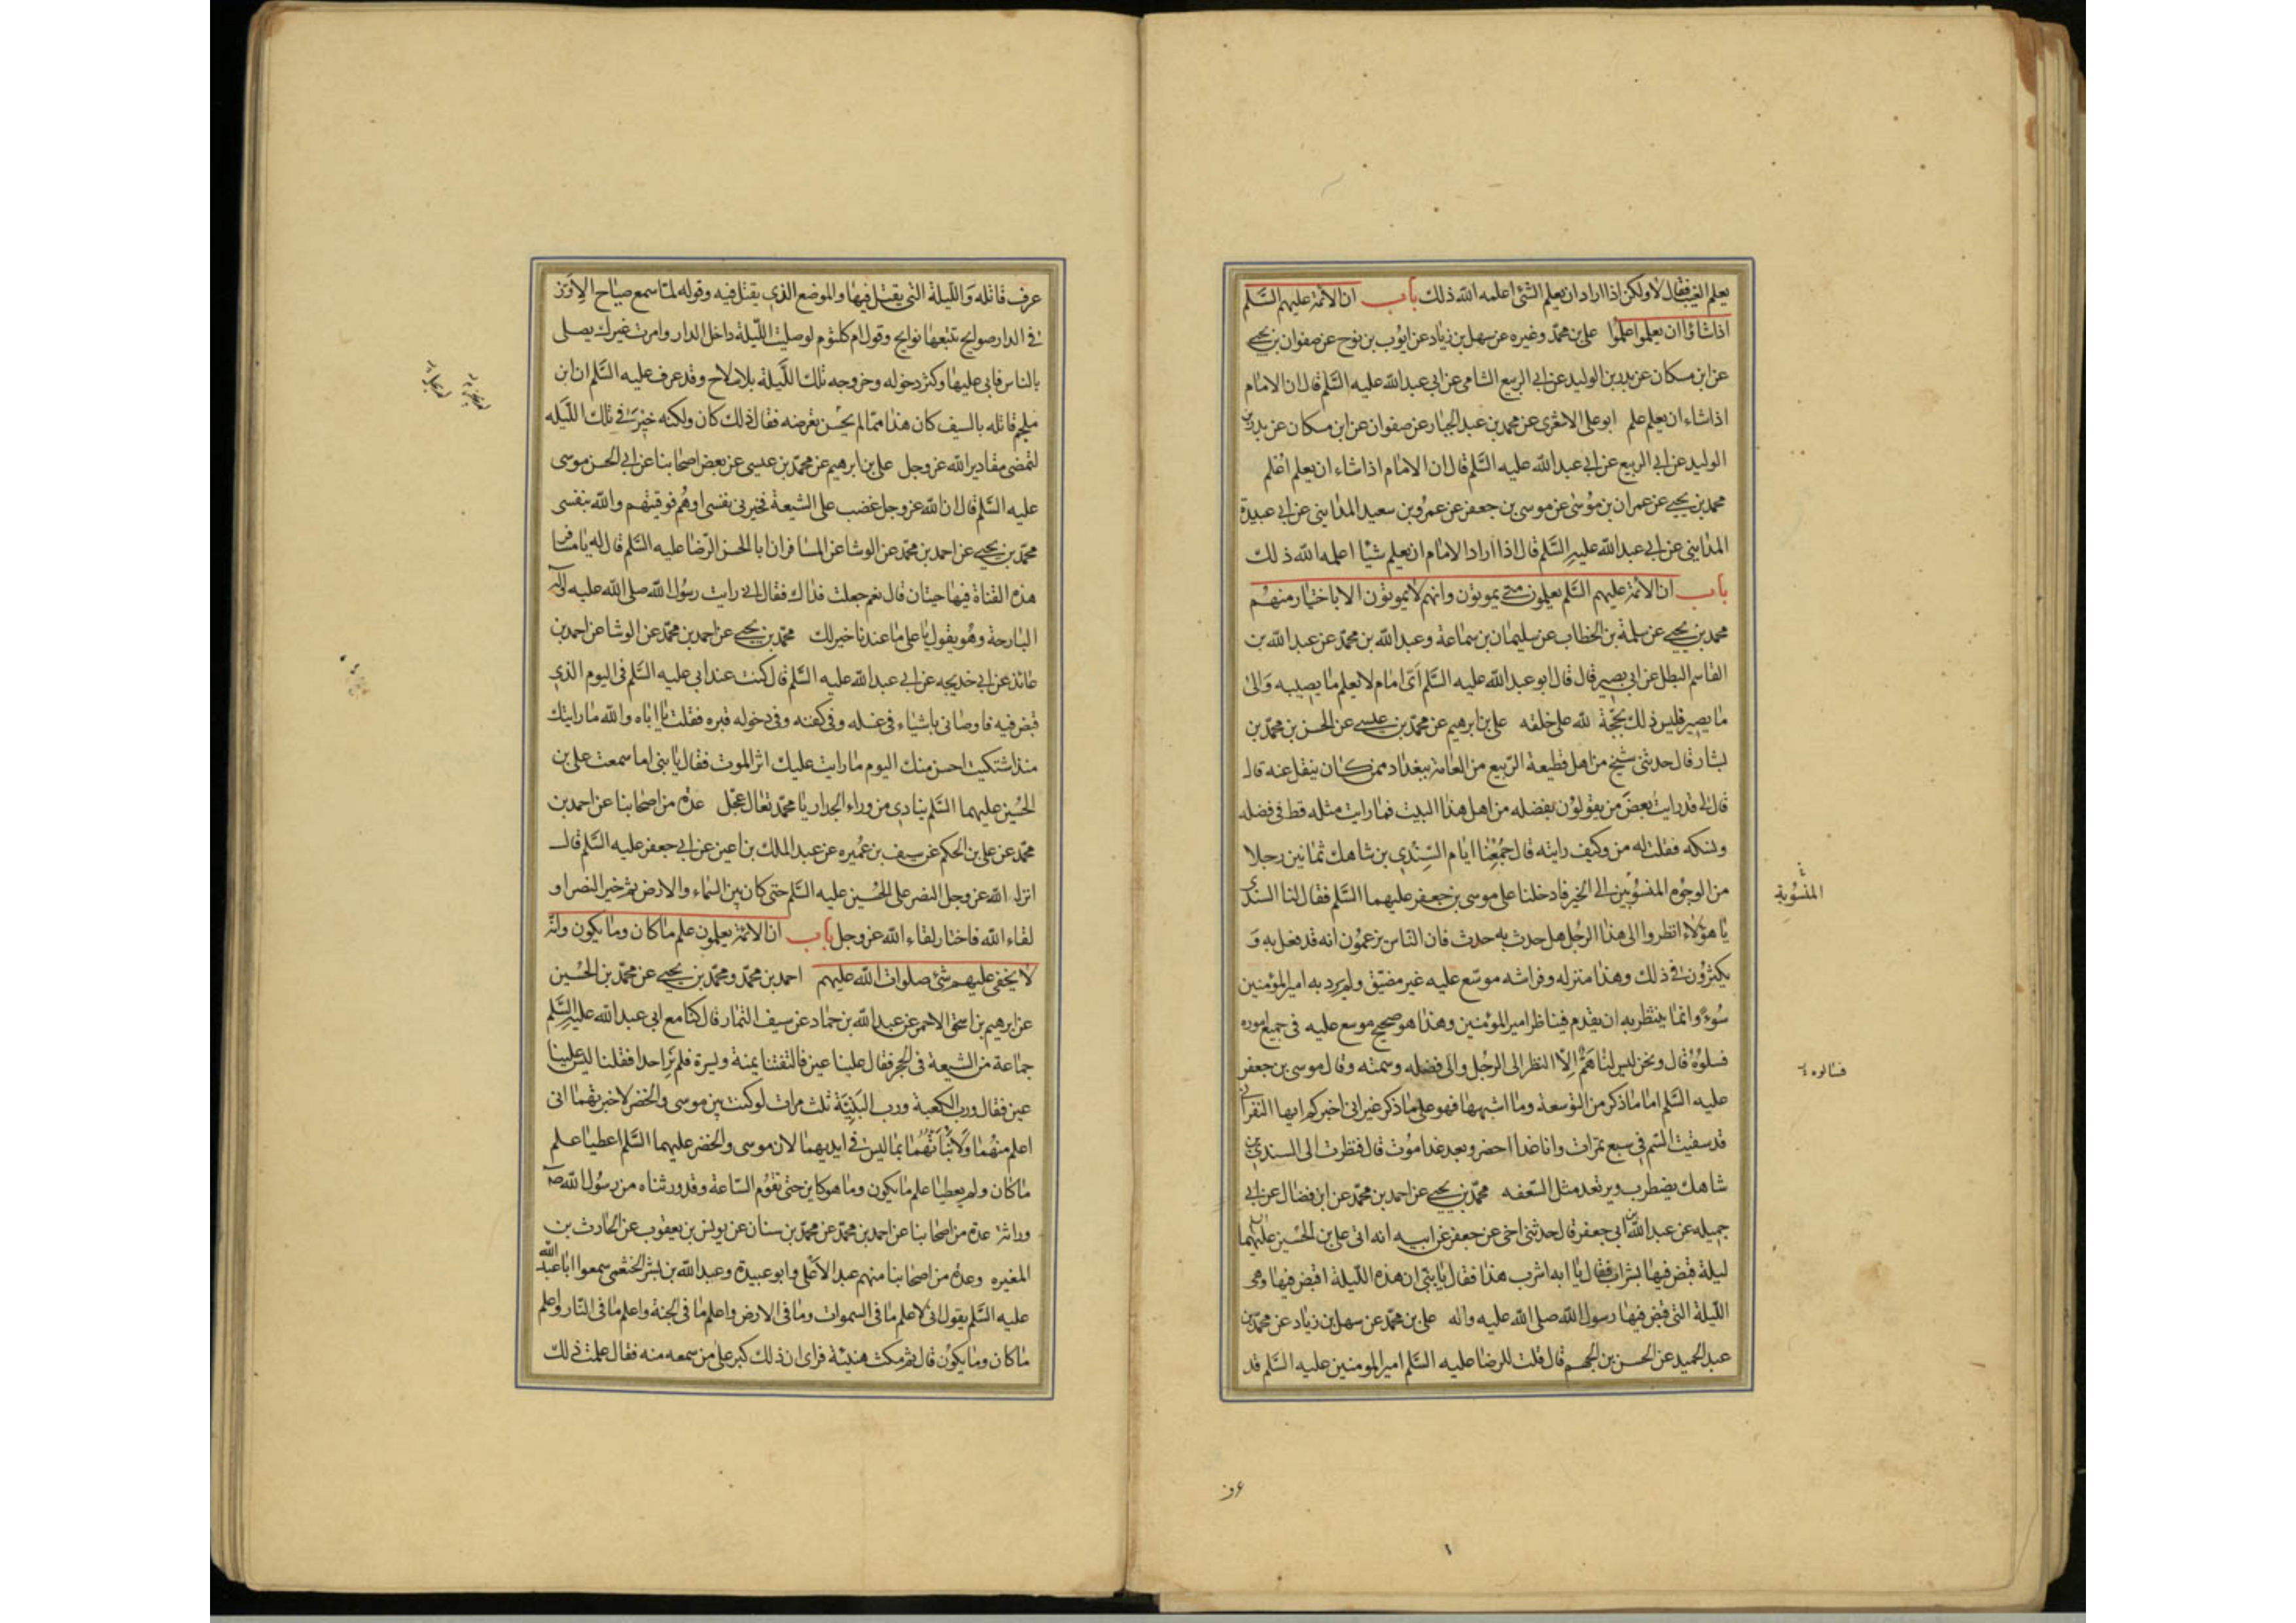 يعلم الغيب فقال لا ولكن اذا اراد ان يعلم الشئ اعلمه الله ذلك باب ان الائمة عليهم السلم
اذا شاؤا ان يعلموا اعلموا على بن محمد وغيره عن سهل بن زياد عن ايوب بن نوح عن صفوان بن يحيى
عن ابن مسكان عن بدر بن الوليد عن ابى الربيع الشامى عن ابى عبد الله عليه السلم قال ان الامام
اذا شاء ان يعلم علم ابو على الاشعرى عن محمد بن عبد الجبار عن صفوان عن ابن مسكان عن بدر بن
الوليد عن ابى الربيع عن ابى عبد الله عليه السلم قال ان الامام اذا شاء ان يعلم اعلم
محمد بن يحيى عن عمران بن موسى عن موسى بن جعفر عن عمرو بن سعيد المداينى عن ابى عبيدة
المداينى عن ابى عبد الله عليه السلم قال اذا اراد الامام ان يعلم شيئا اعلمه الله ذلك
باب ان الائمة عليهم السلم يعلمون متى يموتون وانهم لا يموتون الا باختيار منهم
محمد بن يحيى عن سلمة بن الخطاب عن سليمان بن سماعة وعبد الله بن محمد عن عبد الله بن
القاسم البطل عن ابى بصير قال قال ابو عبد الله عليه السلم اى امام لا يعلم ما يصيبه والى
ما يصير فليس ذلك بحجة لله على خلقه على بن ابرهيم عن محمد بن عيسى عن الحسن بن محمد بن
بشار قال حدثنى شيخ من اهل قطيعة الربيع من العامة ببغداد ممن كان ينقل عنه قال
قال لى قد رايت بعض من يقولون بفضله من اهل هذا البيت فما رايت مثله قط فى فضله
ونسكه فقلت له من وكيف رايته قال جمعنا ايام السندى بن شاهك ثمانين رجلا
من الوجوه المنسوبين الى الخير فادخلنا على موسى بن جعفر عليهما السلم فقال لنا السندى
يا هؤلاء انظروا الى هذا الرجل هل حدث به حدث فان الناس يزعمون انه قد فعل به و
يكثرون فى ذلك وهذا منزله وفراشه موسع عليه غير مضيق ولم يرد به امير المؤمنين
سوء وانما ينتظر به ان يقدم فيناظر امير المؤمنين وهذا هو صحيح موسع عليه فى جميع اموره
فسلوه قال ونحن ليس لنا هم الا النظر الى الرجل والى فضله وسمته وقال موسى بن جعفر
عليه السلم اما ما ذكر من التوسعة وما اشبهها فهو على ما ذكر غير انى اخبركم ايها النفر انى
قد سقيت السم فى سبع تمرات وانا غدا احضر وبعد غد اموت قال فنظرت الى السندى بن
شاهك يضطرب ويرتعد مثل السعفه محمد بن يحيى عن احمد بن محمد عن ابن فضال عن ابى
جميله عن عبد الله بن ابى جعفر قال حدثنى اخى عن جعفر عن ابيه انه اتى على بن الحسين عليهما
ليلة قبض فيها بشراب فقال يا ابه اشرب هذا فقال يا بنى ان هذه الليلة اقبض فيها وهى
الليلة التى قبض فيها رسول الله صلى الله عليه واله على بن محمد عن سهل بن زياد عن محمد بن
عبد الحميد عن الحسن بن الجهم قال قلت للرضا عليه السلم امير المومنين عليه السلم قد
المنسوبة
عرف قاتله والليلة التى يقتل فيها والموضع الذى يقتل فيه وقوله لما سمع صياح الاوز
فى الدار صوايح تتبعها نوايح وقول ام كلثوم لو صليت الليلة داخل الدار وامرت غيرك يصلى
بالناس فابى عليها وكثر دخوله وخروجه تلك الليلة بلا سلاح وقد عرف عليه السلم ان ابن
ملجم قاتله بالسيف كان هذا مما لم يحسن تعرضه فقال ذلك كان ولكنه خير فى تلك الليله
لتمضى مقادير الله عز وجل على بن ابرهيم عن محمد بن عيسى عن بعض اصحابنا عن ابى الحسن موسى
عليه السلم قال ان الله عز وجل غضب على الشيعة فخيرنى نفسى او هم فوقيتهم والله بنفسى
محمد بن يحيى عن احمد بن محمد عن الوشا عن المسافر ان ابا الحسن الرضا عليه السلم قال له يا مسافر
هذه القناة فيها حيتان قال نعم جعلت فداك فقال انى رايت رسول الله صلى الله عليه واله
البارحة وهو يقول يا على ما عندنا خير لك محمد بن يحيى عن احمد بن محمد عن الوشا عن احمد بن
عائذ عن ابى خديجه عن ابى عبد الله عليه السلم قال كنت عند ابى عليه السلم فى اليوم الذى
قبض فيه فاوصانى باشياء فى غسله وفى كفنه وفى دخوله قبره فقلت يا اباه والله ما رايتك
منذ اشتكيت احسن منك اليوم ما رايت عليك اثر الموت فقال يا بنى اما سمعت على بن
الحسين عليهما السلم ينادى من وراء الجدار يا محمد تعال عجل عدة من اصحابنا عن احمد بن
محمد عن على بن الحكم عن سيف بن عميره عن عبد الملك بن اعين عن ابى جعفر عليه السلم قال
انزل الله عز وجل النصر على الحسين عليه السلم حتى كان بين السماء والارض ثم خير النصر او
لقاء الله فاختار لقاء الله عز وجل باب ان الائمة يعلمون علم ما كان وما يكون وانه
لا يخفى عليهم شئ صلوات الله عليهم احمد بن محمد ومحمد بن يحيى عن محمد بن الحسين
عن ابرهيم بن اسحق الاحمر عن عبد الله بن حماد عن سيف التمار قال كنا مع ابى عبد الله عليه السلم
جماعة من الشيعة فى الحجر فقال علينا عين فالتفتنا يمنة ويسرة فلم نر احدا فقلنا ليس علينا
عين فقال ورب الكعبة ورب البنية ثلث مرات لو كنت بين موسى والخضر لاخبرتهما انى
اعلم منهما ولانبأتهما بما ليس فى ايديهما لان موسى والخضر عليهما السلم اعطيا علم
ما كان ولم يعطيا علم ما يكون وما هو كاين حتى تقوم الساعة وقد ورثناه من رسول الله صلى
وراثة عدة من اصحابنا عن احمد بن محمد عن محمد بن سنان عن يونس بن يعقوب عن الحارث بن
المغيره وعدة من اصحابنا منهم عبد الاعلى وابو عبيدة وعبد الله بن بشر الخثعمى سمعوا ابا عبد الله
عليه السلم يقول انى لاعلم ما فى السموات وما فى الارض واعلم ما فى الجنة واعلم ما فى النار واعلم
ما كان وما يكون قال ثم مكث هنيئة فراى ان ذلك كبر على من سمعه منه فقال علمت ذلك